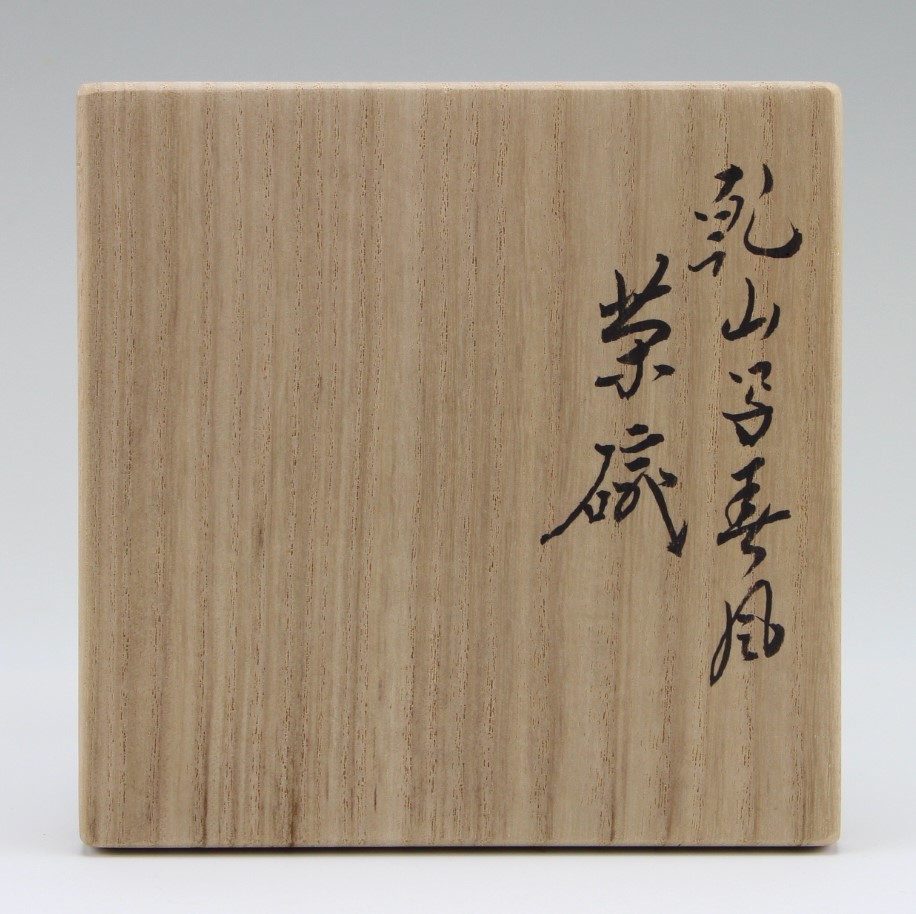 乾山写春風
茶碗